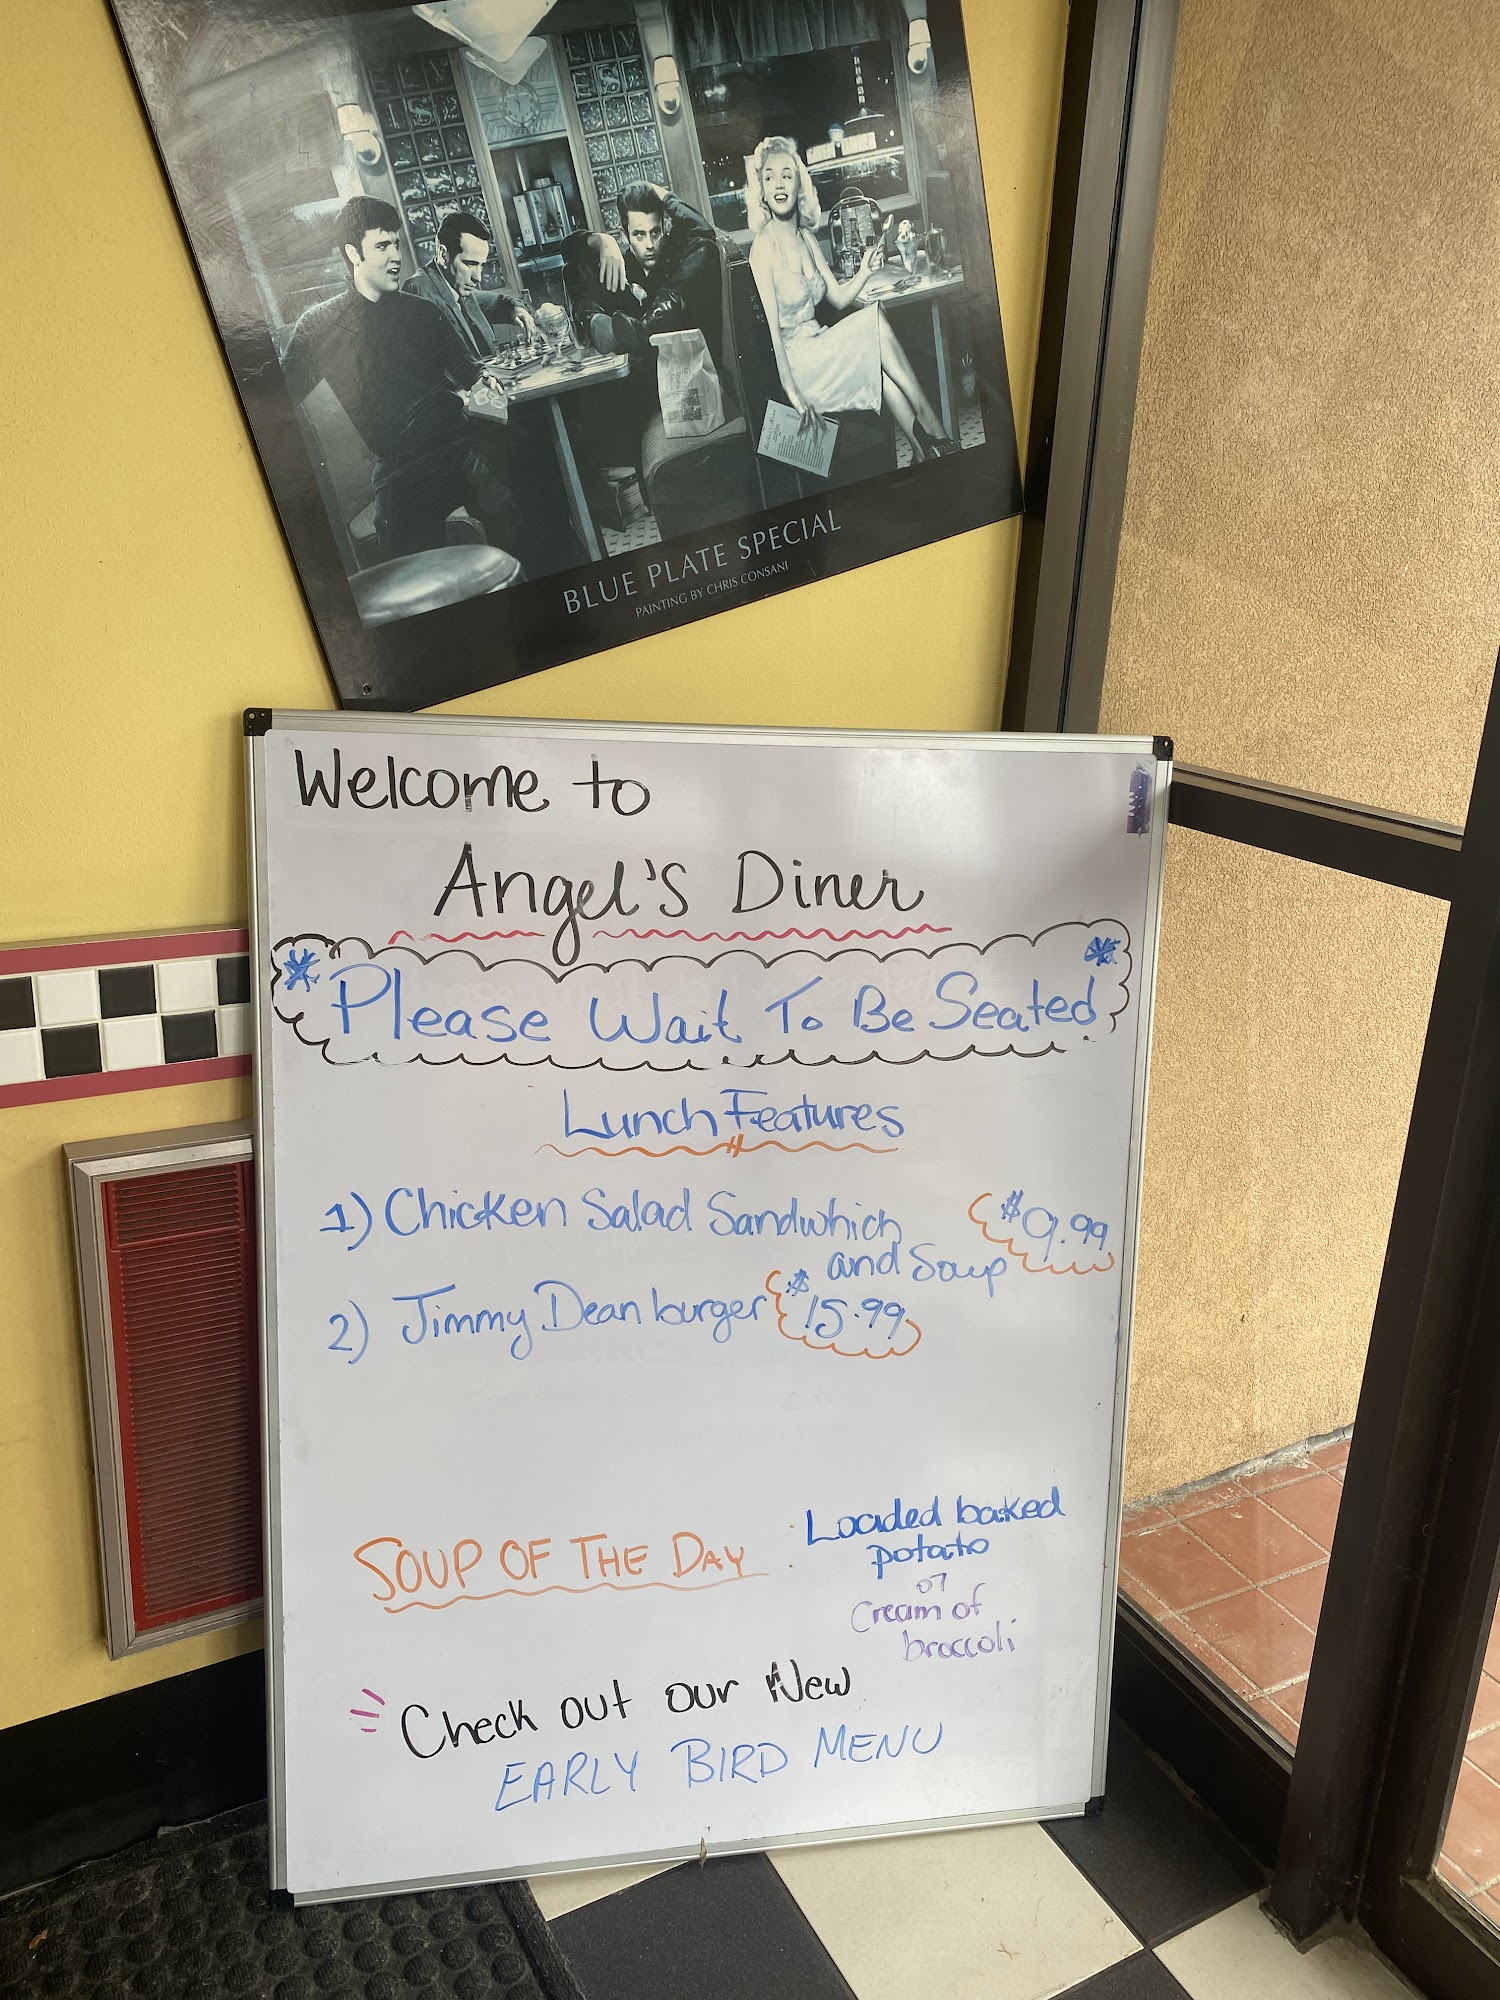 BLUE PLATE SPECIAL
PAINTING BY CHRIS CONSANI
Welcome to
Angel's Diner
* Please Wait To Be Seated *
Lunch Features
1) Chicken Salad Sandwhich $9.99
and Soup
2) Jimmy Dean burger $15.99
SOUP OF THE DAY : Loaded baked
potato
or
Cream of
broccoli
Check out our New
EARLY BIRD MENU